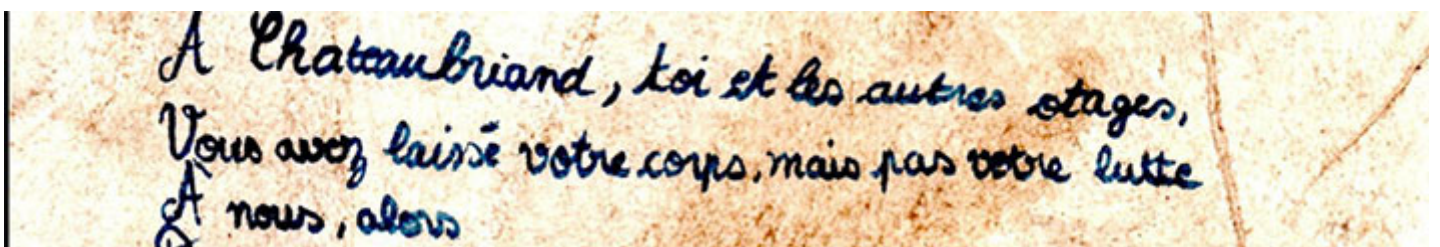 A Chateaubriand, toi et les autres otages,
Vous avez laissé votre corps, mais pas votre lutte
A nous, alors